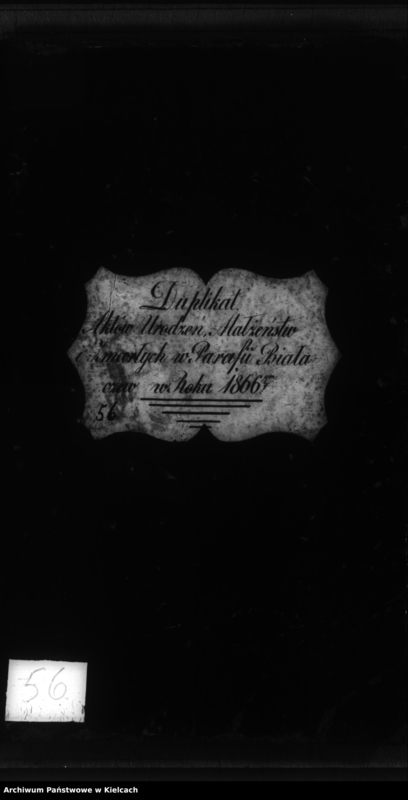 Duplikat
Aktów Urodzeń, Małżeństw
i Zmarłych w Parafii Biała
czew w Roku 1866ym
56
56.
Archiwum Państwowe w Kielcach